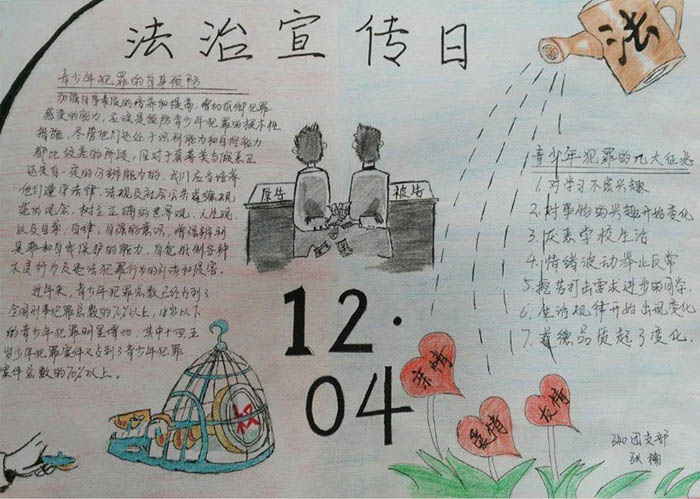 法治宣传日
法
青少年犯罪的自身预防
加强自身素质的培养和提高，增加抵御犯罪
感染的能力，应该是预防青少年犯罪的根本性
措施，尽管他们还处于识别能力和自控能力
都比较差的阶段，但对于真善美与假丑恶
还是有一定的分辨能力的，我们应当培养
他们遵守法律、法规及社会公共道德规
范的观念，树立正确的世界观、人生观
以及自尊、自律、自强的意识，增强辨别
是非和自我保护的能力，自觉抵制各种
不良行为及违法犯罪行为的引诱和侵害。
近年来，青少年犯罪总数已经占到了
全国刑事犯罪总数的70%以上，
的青少年犯罪
当少年犯罪案件又占到了青少年犯罪
案件总数的70%以上。
原告
被告
12.
04
权
青少年犯罪的九大征兆
1.对学习不感兴趣
2.对事物的兴趣开始变化
3.厌恶学校生活
4.情绪波动异常
5.挖苦打击要求进步的同学
6.生活规律开始出现变化
7.道德品质起了变化.
亲情
爱情
友情
340团支部
张楠